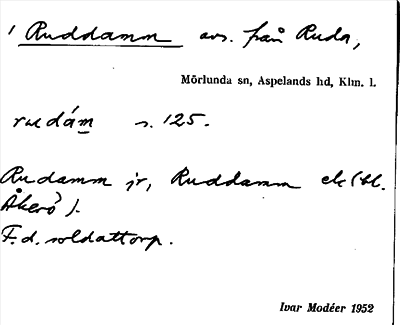 1 Ruddamm avs. från Ruda,
Mörlunda sn, Aspelands hd, Klm. l.
rudám s. 125.
Rudamm jr, Ruddamm ek (bl.
Åkerö).
F.d. soldattorp.
Ivar Modéer 1952